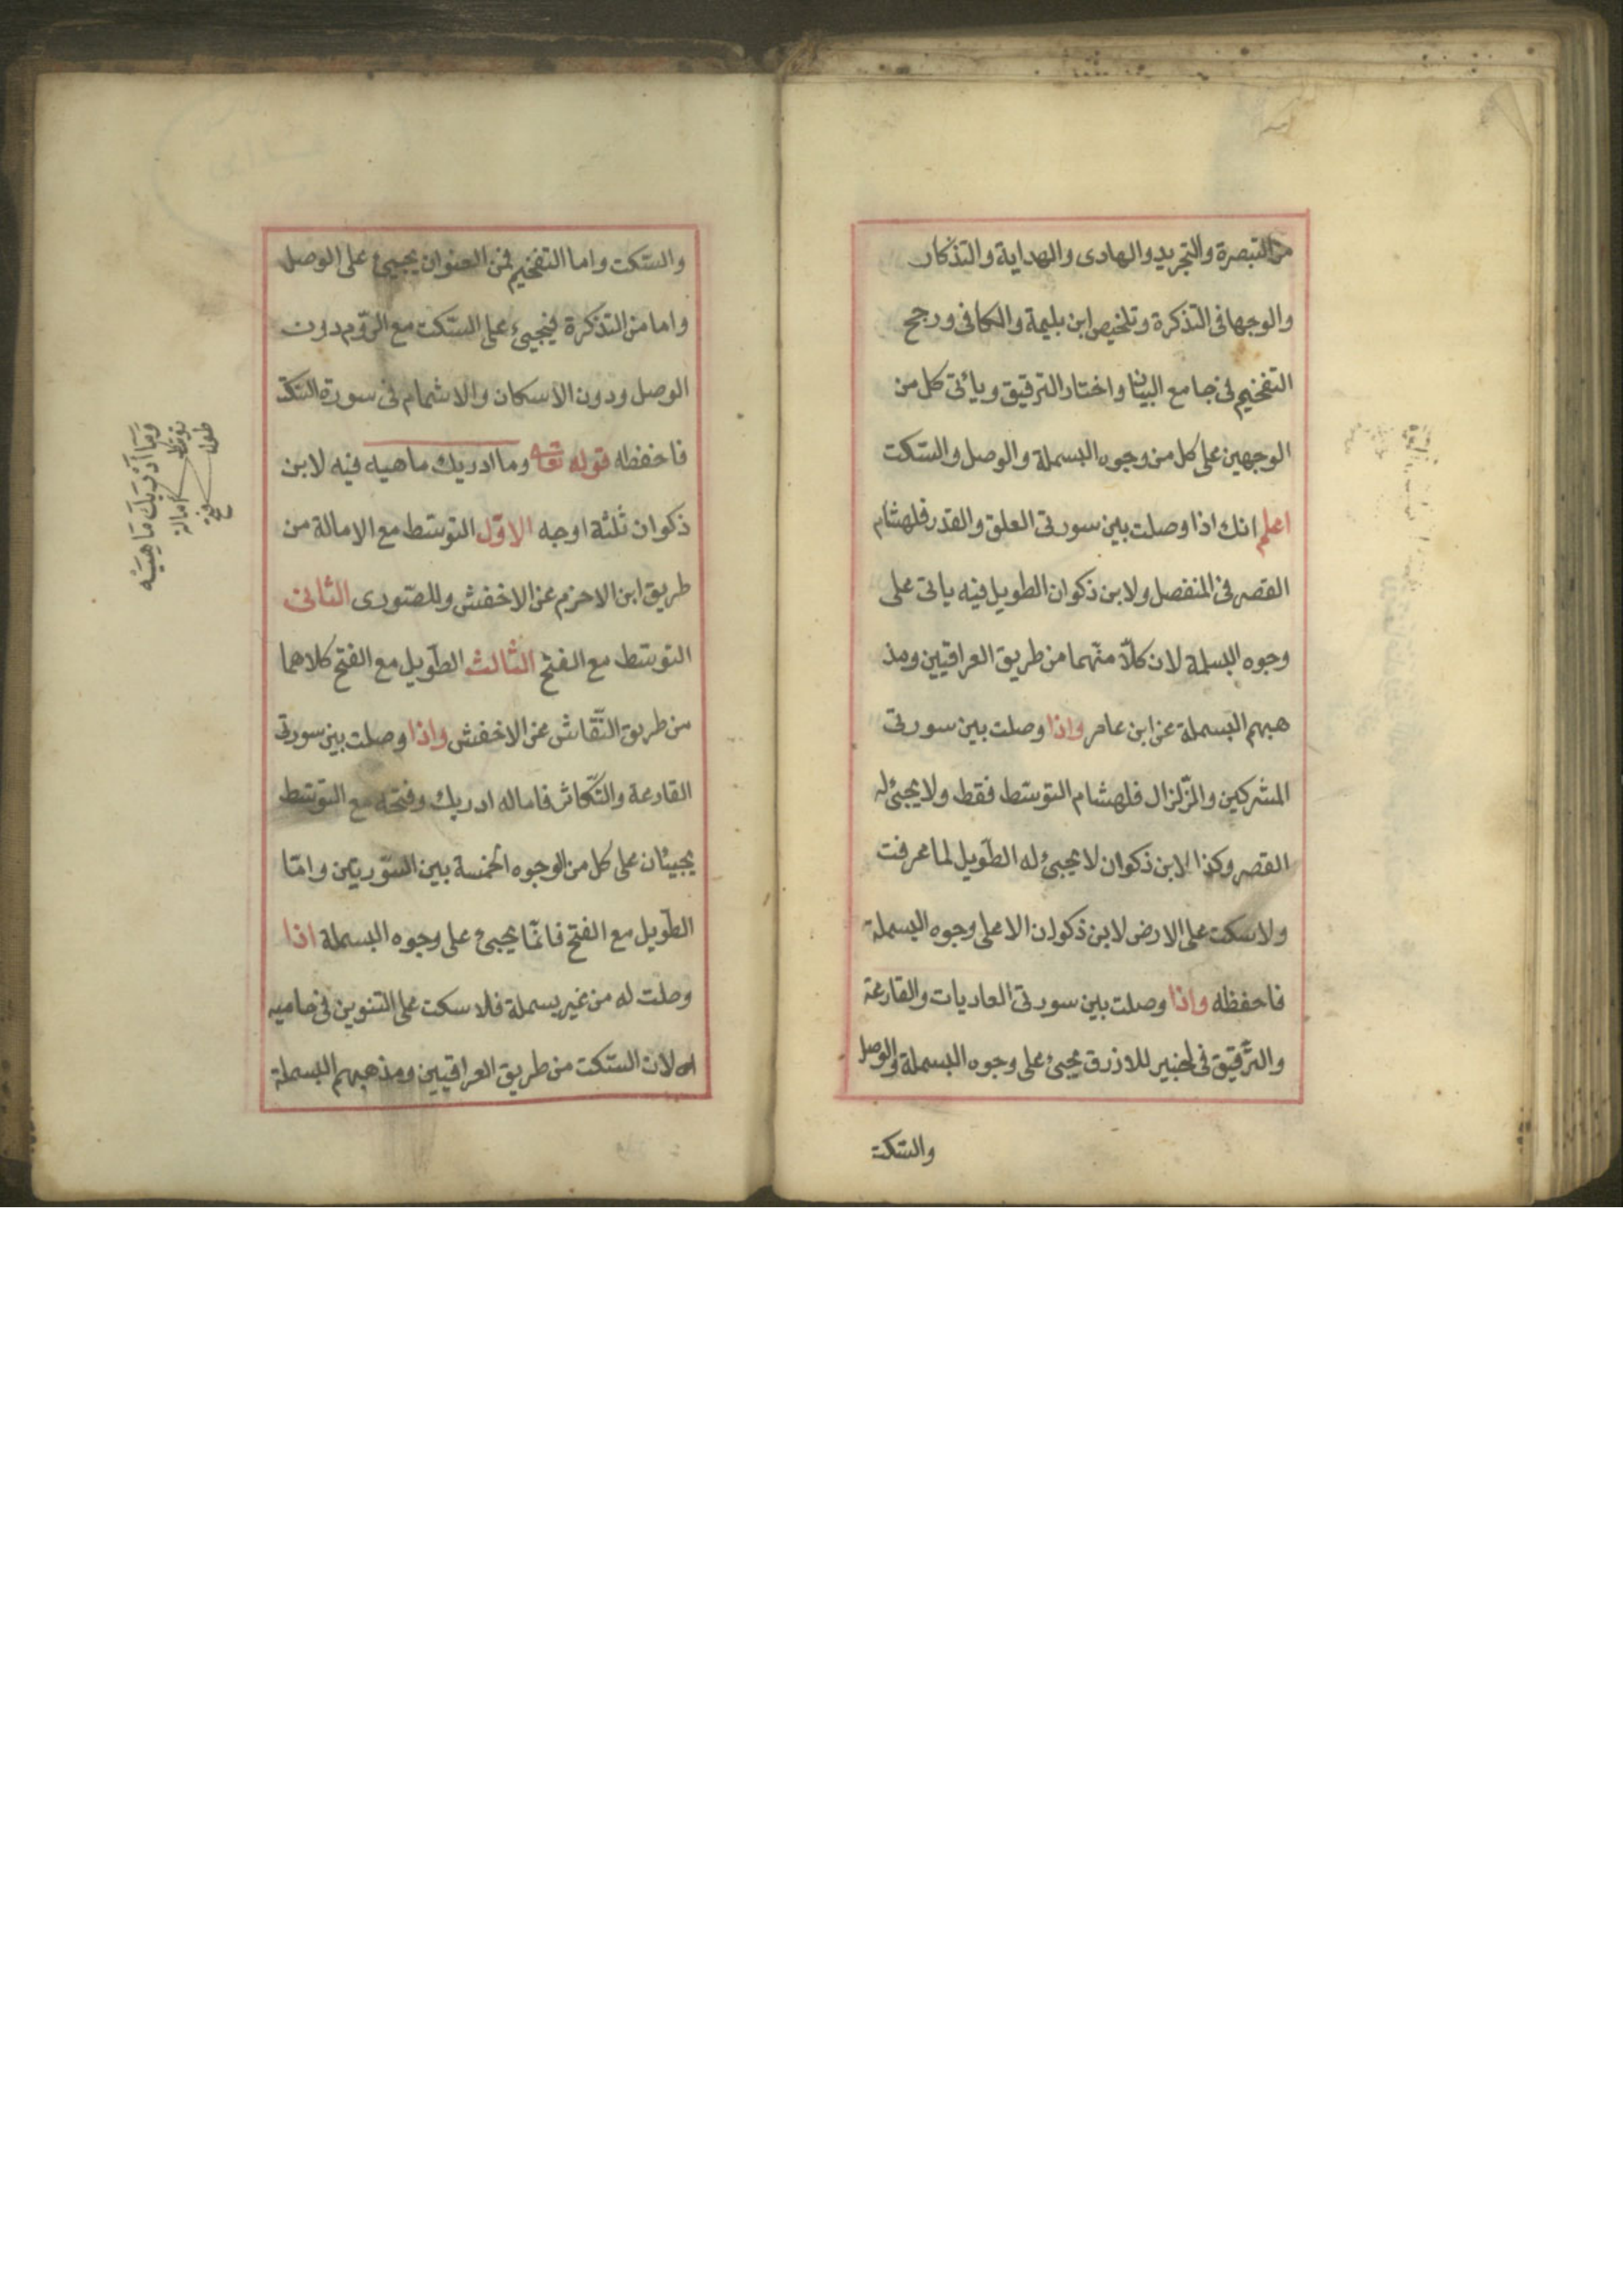 من التبصرة والتجريد والهادى والهداية والتذكار
والوجهافى التذكرة وتلخيص ابن بليمة والكافى ورجح
التفخيم فى جامع البيان واختار الترقيق ويأتى كل من
الوجهين على كل من وجوه البسملة والوصل والسّكت
اعلم انك اذا وصلت بين سورتى العلق والقدر فلهشام
القصر فى المنفصل ولابن ذكوان الطويل فيه ياتى على
وجوه البسلمة لان كلّا منّهما من طريق العراقيين ومذ
هبهم البسملة عن ابن عامر واذا وصلت بين سورتى
المشركين والزّلزال فلهشام التوسّط فقط ولا يجئ له
القصر وكذا لابن ذكوان لا يجيئ له الطّويل لما عرفت
ولا سكت على الارض لابن ذكوان الا على وجوه البسملة
فاحفظه واذا وصلت بين سورتى العاديات والقارعة
والترّقيق فى لخبير للازرق يجئ على وجوه البسملة والوصل
والسّكت
والسّكت واما التفخيم فمن العنوان يجيئ على الوصل
واما من التذكرة فيجيئ على السّكت مع الرّوم دون
الوصل ودون الاسكان والاشمام فى سورة السّكت
فاحفظه قوله تعالى وما ادريك ماهيه فيه لابن
ذكوان ثلثة اوجه الاوّل التوسّط مع الامالة من
طريق ابن الاحزم عن الاخفش وللصّورى الثانى
التوسّط مع الفتح الثالث الطّويل مع الفتح كلاهما
من طريق النّقاش عن الاخفش واذا وصلت بين سورتى
القارعة والتّكاثر فاماله ادريك وفتحه مع التوسّط
يجيئان على كل من الوجوه الخمسة بين السّورتين وامّا
الطّويل مع الفتح فانمّا يجيئ على وجوه البسملة اذا
وصلت له من غير بسملة فلا سكت على التنوين فى حاميه
لان السّكت من طريق العراقيين ومذهبهم البسملة
وَمَا أَدْرَيكَ مَا هِيَهْ
توسّط امالة
طول فتح